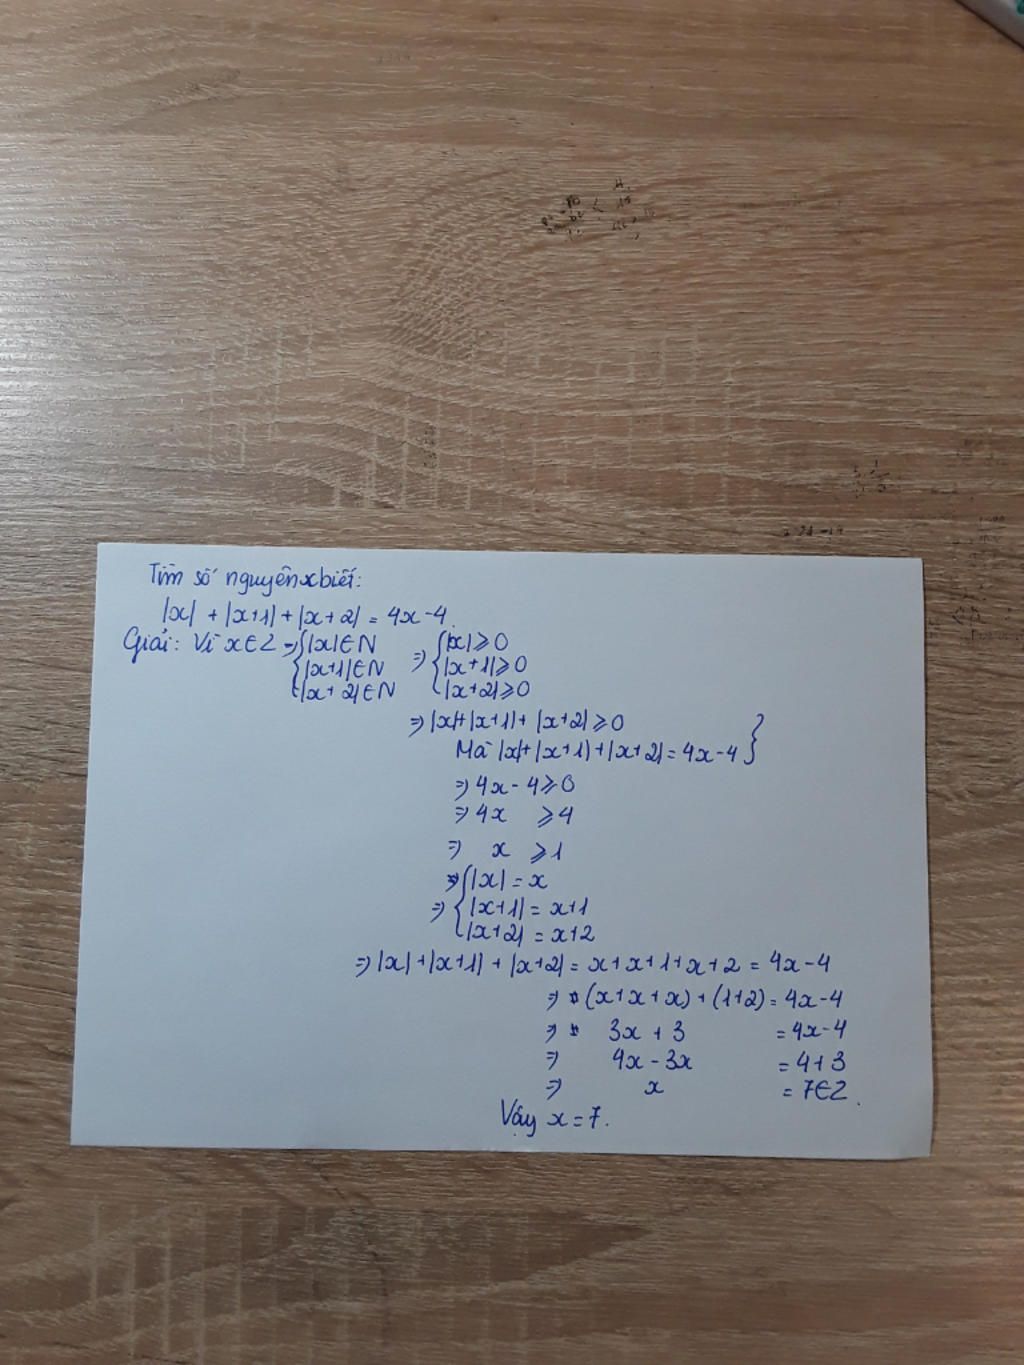 Tìm số nguyên x biết:
|x| + |x+1| + |x+2| = 4x-4
Giải: Vì x∈Z => { |x|∈N => { |x|⩾0
|x+1|∈N |x+1|⩾0
|x+2|∈N |x+2|⩾0
=> |x|+|x+1|+|x+2|⩾0
Mà |x|+|x+1|+|x+2|=4x-4 }
=> 4x-4⩾0
=> 4x ⩾4
=> x ⩾1
{ |x| = x
=> |x+1| = x+1
|x+2| = x+2
=> |x|+|x+1|+|x+2| = x+x+1+x+2 = 4x-4
=> (x+x+x)+(1+2) = 4x-4
=> 3x + 3 = 4x-4
=> 4x - 3x = 4+3
=> x = 7∈Z.
Vậy x=7.